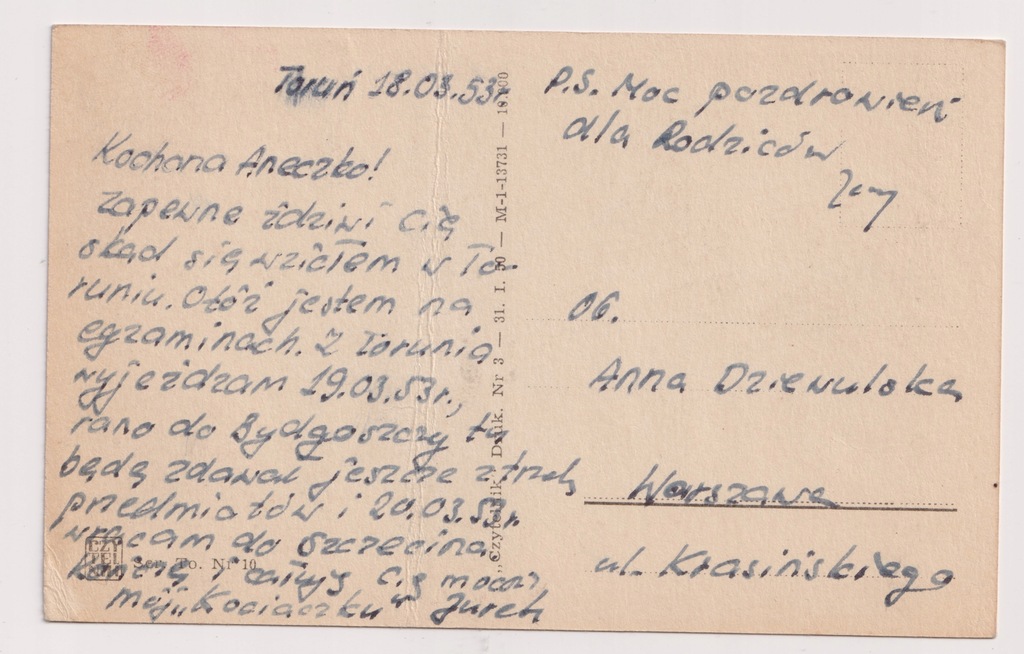 Toruń 18.03.53r.
Kochana Aneczko!
Zapewne zdziwi Cię
skąd się wziąłem w To-
runiu. Otóż jestem na
egzaminach. Z Torunia
wyjeżdzam 19.03.53r.,
rano do Bydgoszczy tu
będę zdawał jeszcze z trzech
przedmiotów i 20.03.53r.
wracam do Szczecina.
i całuję Cię mocno
mój „Kociaczku" Jurek
Ser. To. Nr 10
„Czytelnik" Druk. Nr 3 — 31. I. 50 — M-1-13731 — 18.000
P.S. Moc pozdrowień
dla Rodziców
06.
Anna Dziewulska
Warszawa
ul. Krasińskiego